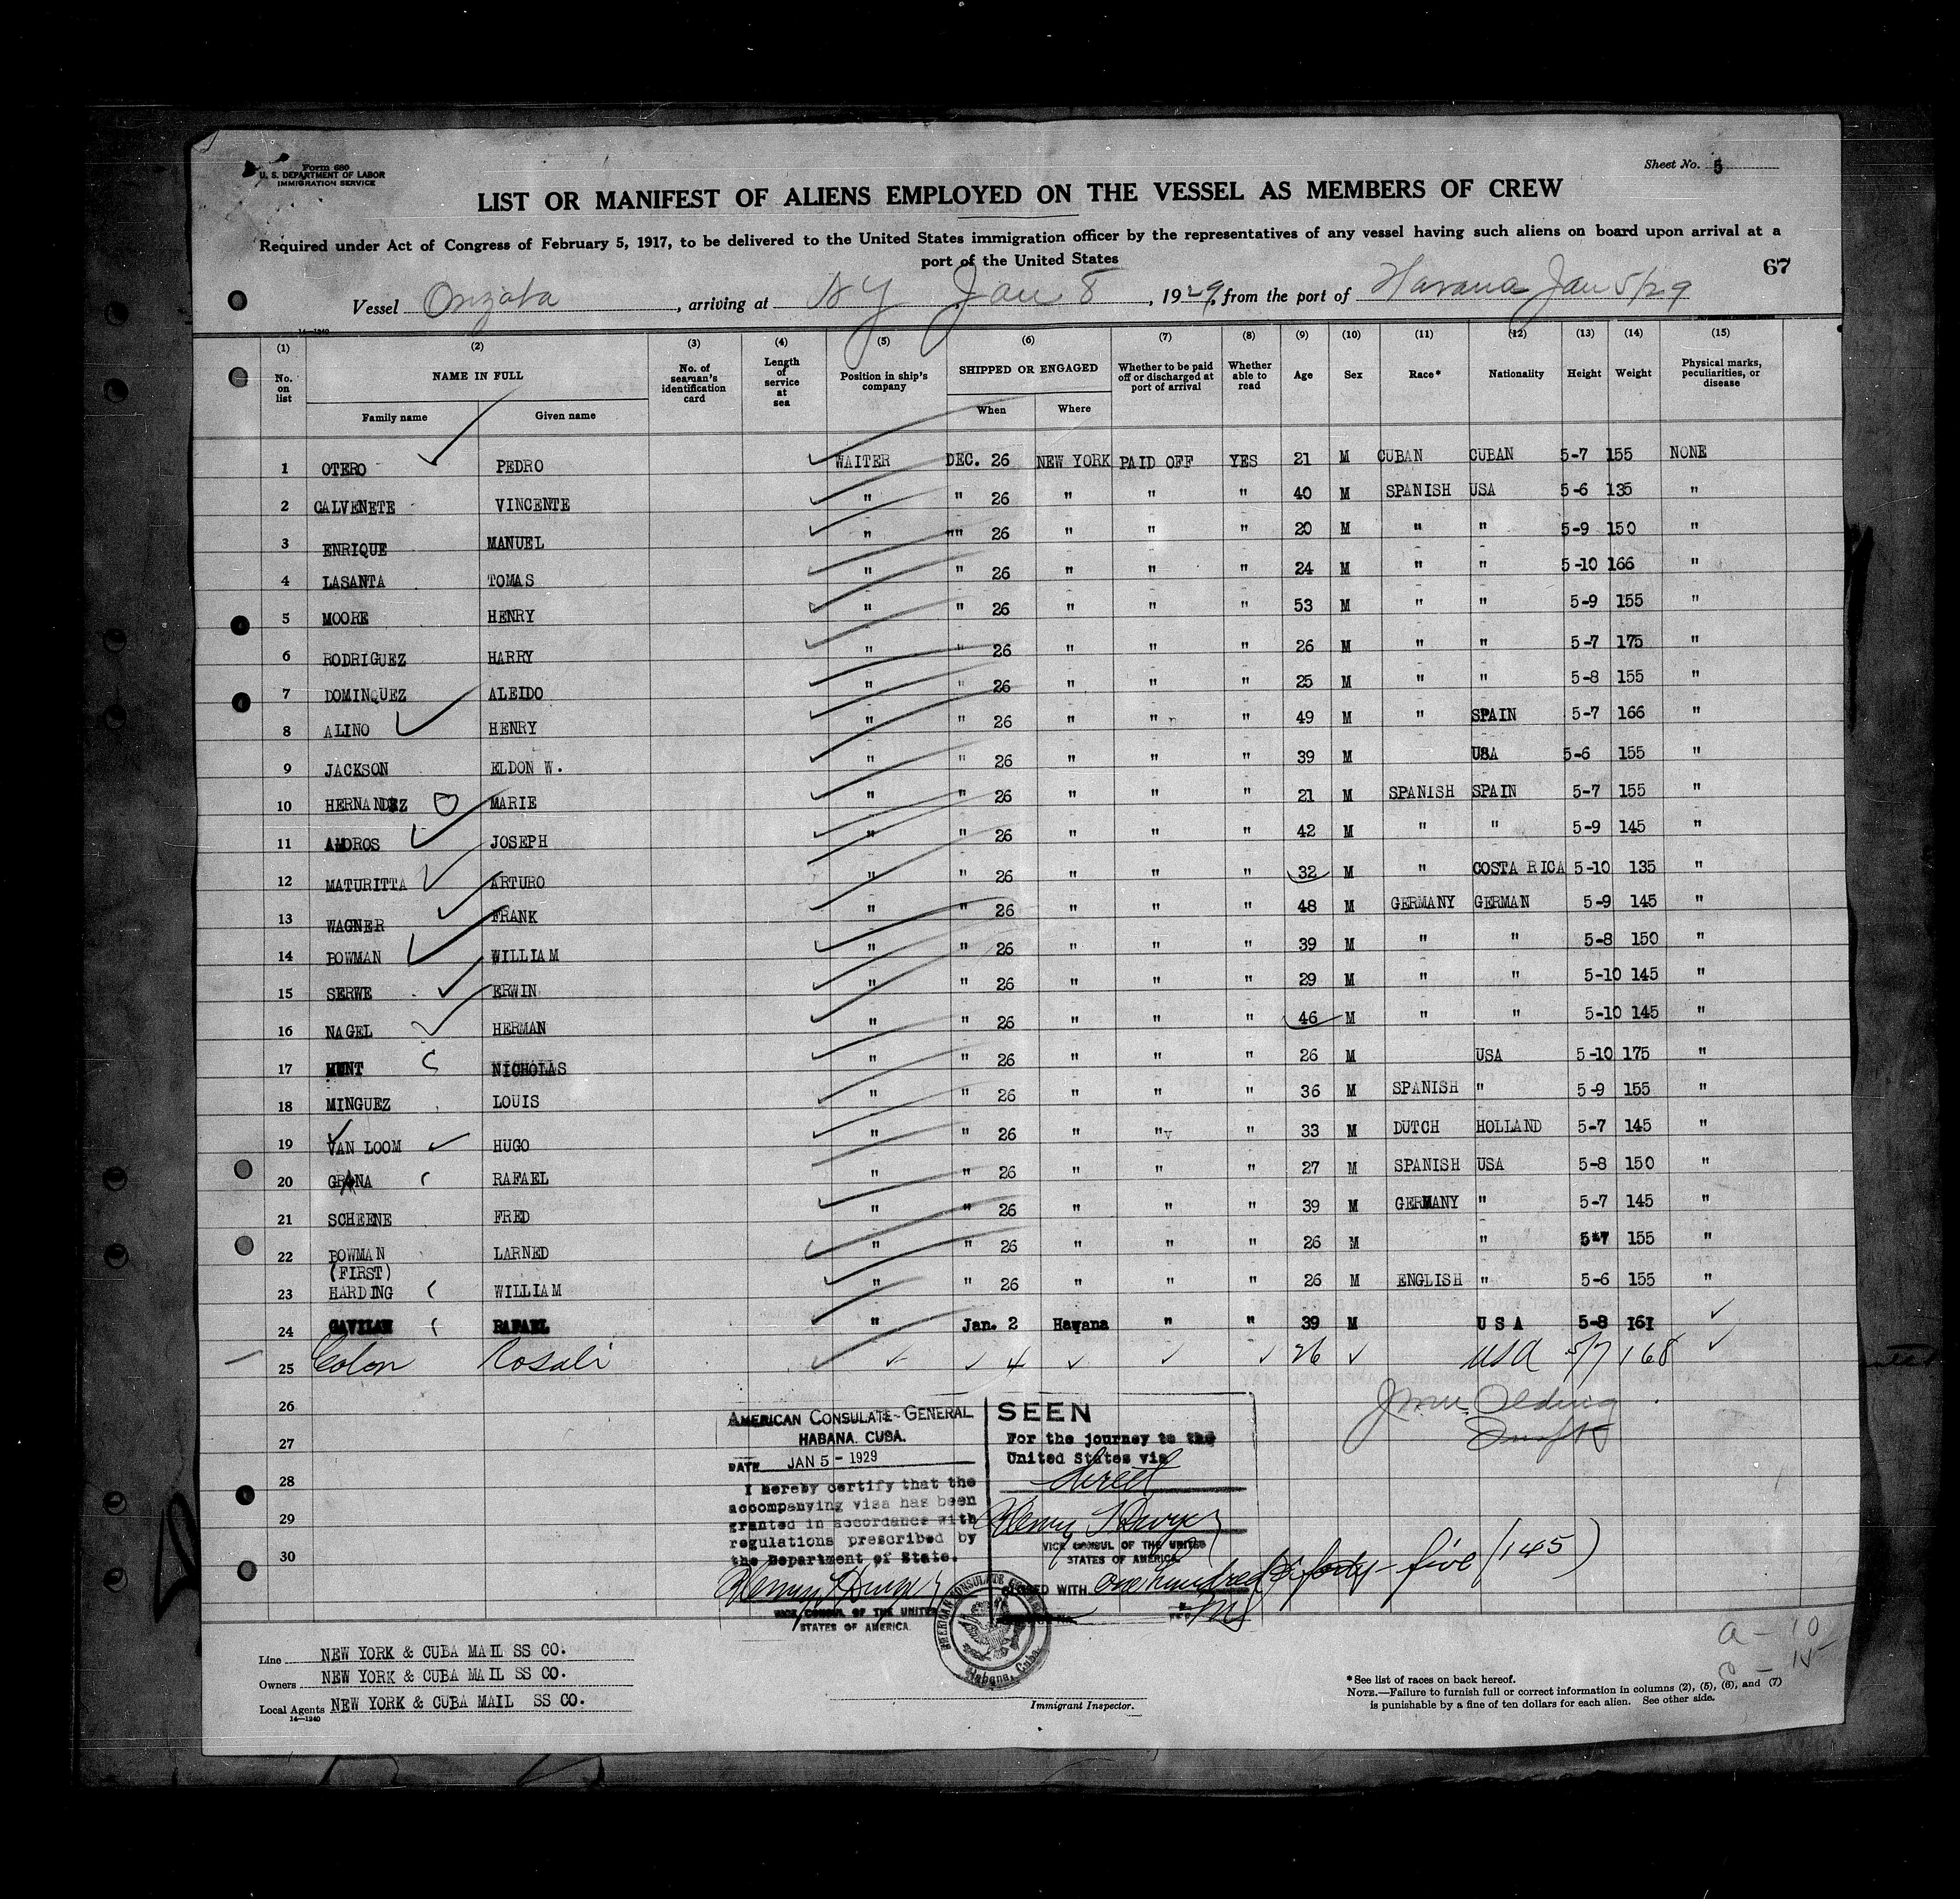 Form 680
U. S. DEPARTMENT OF LABOR
IMMIGRATION SERVICE
Sheet No. 5
LIST OR MANIFEST OF ALIENS EMPLOYED ON THE VESSEL AS MEMBERS OF CREW
Required under Act of Congress of February 5, 1917, to be delivered to the United States immigration officer by the representatives of any vessel having such aliens on board upon arrival at a
port of the United States
67
Vessel Orizaba, arriving at NY Jan 8, 1929, from the port of Havana Jan 5/29
14—1240
(1) (2) (3) (4) (5) (6) (7) (8) (9) (10) (11) (12) (13) (14) (15)
No. on list NAME IN FULL Family name Given name No. of seaman's identification card Length of service at sea Position in ship's company SHIPPED OR ENGAGED When Where Whether to be paid off or discharged at port of arrival Whether able to read Age Sex Race* Nationality Height Weight Physical marks, peculiarities, or disease
1 OTERO PEDRO WAITER DEC. 26 NEW YORK PAID OFF YES 21 M CUBAN CUBAN 5-7 155 NONE
2 CALVENETE VINCENTE " " 26 " " " 40 M SPANISH USA 5-6 135 "
3 ENRIQUE MANUEL " "" 26 " " " 20 M " " 5-9 150 "
4 LASANTA TOMAS " 26 " " " 24 M " " 5-10 166 "
5 MOORE HENRY " " 26 " " " 53 M " " 5-9 155 "
6 RODRIGUEZ HARRY " " 26 " " " 26 M " " 5-7 175 "
7 DOMINQUEZ ALEIDO " " 26 " " " 25 M " " 5-8 155 "
8 ALINO HENRY " " 26 " " " 49 M " SPAIN 5-7 166 "
9 JACKSON ELDON W. " " 26 " " " 39 M USA 5-6 155 "
10 HERNANDEZ MARIE " " 26 " " " 21 M SPANISH SPAIN 5-7 155 "
11 AMOROS JOSEPH " " 26 " " " 42 M " " 5-9 145 "
12 MATURITTA ARTURO " " 26 " " " 32 M " COSTA RICA 5-10 135 "
13 WAGNER FRANK " " 26 " " " 48 M GERMANY GERMAN 5-9 145 "
14 BOWMAN WILLIAM " " 26 " " " 39 M " " 5-8 150 "
15 SERWE ERWIN " " 26 " " " 29 M " " 5-10 145 "
16 NAGEL HERMAN " " 26 " " " 46 M " " 5-10 145 "
17 NICHOLAS " " 26 " " " 26 M USA 5-10 175 "
18 MINGUEZ LOUIS " " 26 " " " 36 M SPANISH " 5-9 155 "
19 VAN LOOM HUGO " " 26 " " " 33 M DUTCH HOLLAND 5-7 145 "
20 GRANA RAFAEL " " 26 " " " 27 M SPANISH USA 5-8 150 "
21 SCHEENE FRED " " 26 " " " 39 M GERMANY " 5-7 145 "
22 BOWMAN LARNED " " 26 " " " 26 M " 5-7 155 "
(FIRST)
23 HARDING WILLIAM " " 26 " " " 26 M ENGLISH " 5-6 155 "
24 GAVILAN RAFAEL " Jan. 2 Havana " " 39 M U S A 5-8 161
25 Colon Rosali 4 26 USA 5/7 168
26
27
28
29
30
AMERICAN CONSULATE-GENERAL
HABANA. CUBA.
DATE JAN 5 - 1929
I hereby certify that the
accompanying visa has been
granted in accordance with
regulations prescribed by
the Department of State.
VICE CONSUL OF THE UNITED
STATES OF AMERICA
SEEN
For the journey to the
United States via
direct
VICE CONSUL OF THE UNITED
STATES OF AMERICA
CLOSED WITH one hundred & forty-five (145)
AMERICAN CONSULATE
Habana, Cuba
Line NEW YORK & CUBA MAIL SS CO.
Owners NEW YORK & CUBA MAIL SS CO.
Local Agents NEW YORK & CUBA MAIL SS CO.
14—1240
Immigrant Inspector.
*See list of races on back hereof.
NOTE.—Failure to furnish full or correct information in columns (2), (5), (6), and (7)
is punishable by a fine of ten dollars for each alien. See other side.